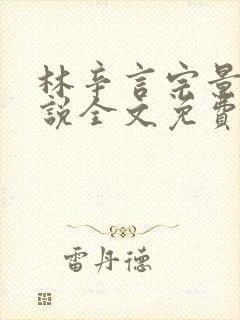 林辛言宗景
說全文免費
雷丹德